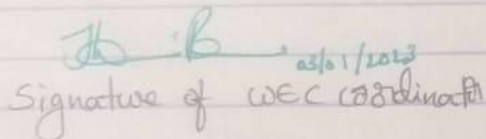 03/01/2023
Signature of WEC Coordinator